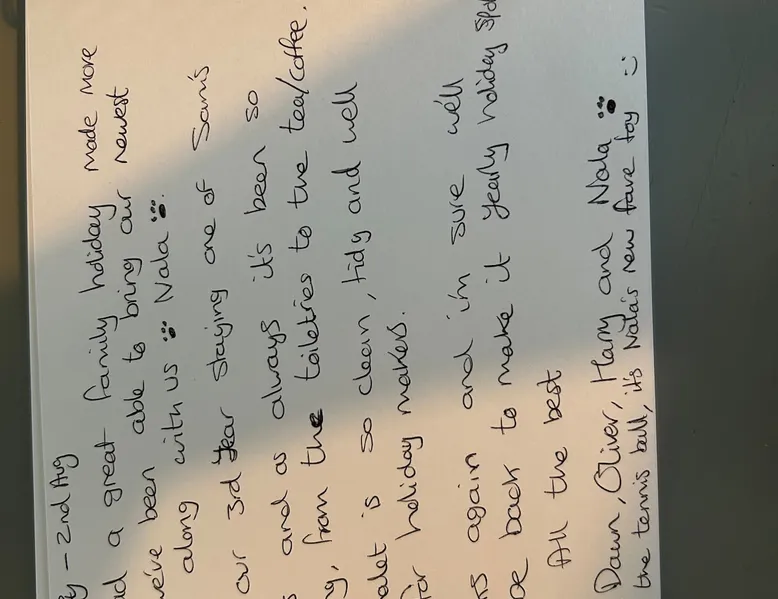 – 2nd Aug
a great family holiday made more
we've been able to bring our newest
along with us Nala
our 3rd year staying one of Sam's
and as always it's been so
from the toiletries to the tea/coffee.
is so clean, tidy and well
for holiday makers.
again and i'm sure we'll
back to make it yearly holiday
All the best
Dawn, Oliver, Harry and Nala
the tennis ball, its Nala's new fave toy :)